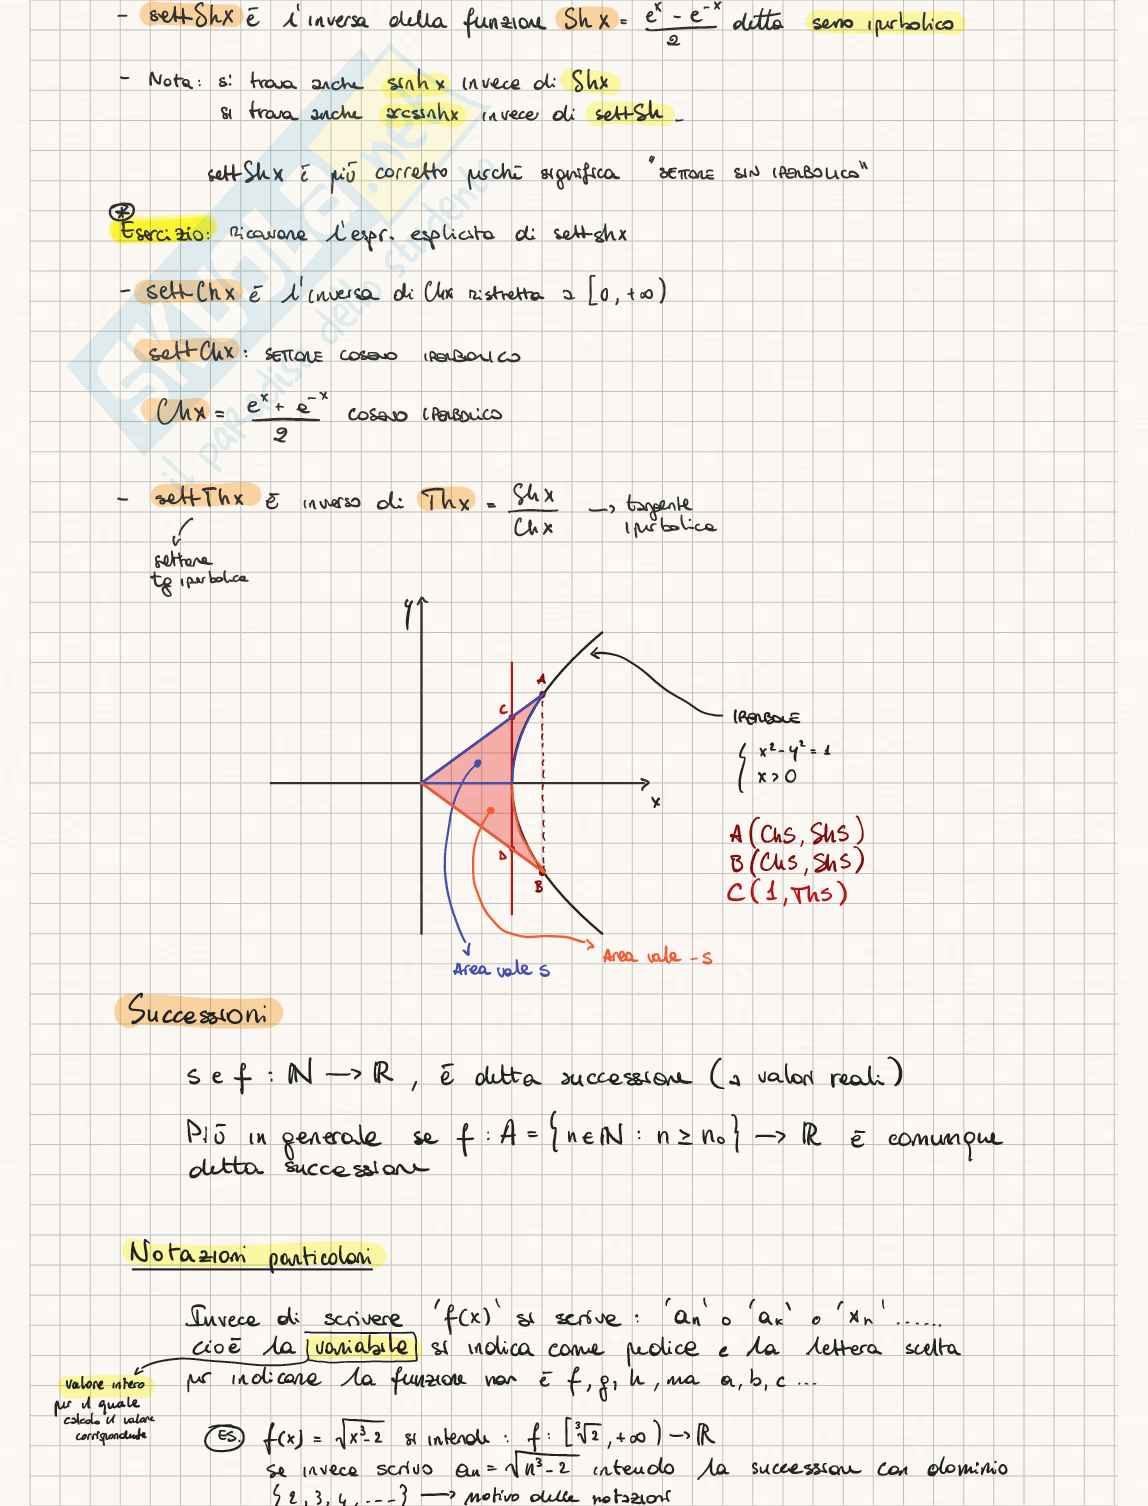 - settShx è l'inversa della funzione Sh x = (e^x - e^-x)/2 detta seno iperbolico
- Nota: si trova anche sinh x invece di Shx
si trova anche arcsinhx invece di settSh
settShx è più corretto perché significa "SETTORE SIN IPERBOLICO"
*
Esercizio: Ricavare l'espr. esplicita di settshx
- settChx è l'inversa di Chx ristretta a [0, +∞)
settChx: SETTORE COSENO IPERBOLICO
Chx = (e^x + e^-x)/2 COSENO IPERBOLICO
- settThx è inversa di Thx = Shx/Chx → tangente
iperbolica
settore
tg iperbolica
y
A
C
IPERBOLE
x² - y² = 1
x > 0
x
A (Chs, Shs)
B (Chs, Shs)
C (1, Ths)
D
B
Area vale s
Area vale -s
Successioni
se f : ℕ → ℝ, è detta successione (a valori reali)
Più in generale se f : A = {n ∈ ℕ : n ≥ n₀} → ℝ è comunque
detta successione
Notazioni particolari
Invece di scrivere 'f(x)' si scrive : 'aₙ' o 'aₖ' o 'xₙ' ......
cioè la variabile si indica come pedice e la lettera scelta
per indicare la funzione non è f, g, h, ma a, b, c ...
valore intero
per il quale
calcolo il valore
corrispondente
ES f(x) = √(x³-2) si intende : f : [∛2, +∞) → ℝ
se invece scrivo aₙ = √(n³-2) intendo la successione con dominio
{2, 3, 4, ....} → motivo delle notazioni
SKUOLA.net
il paradiso dello studente